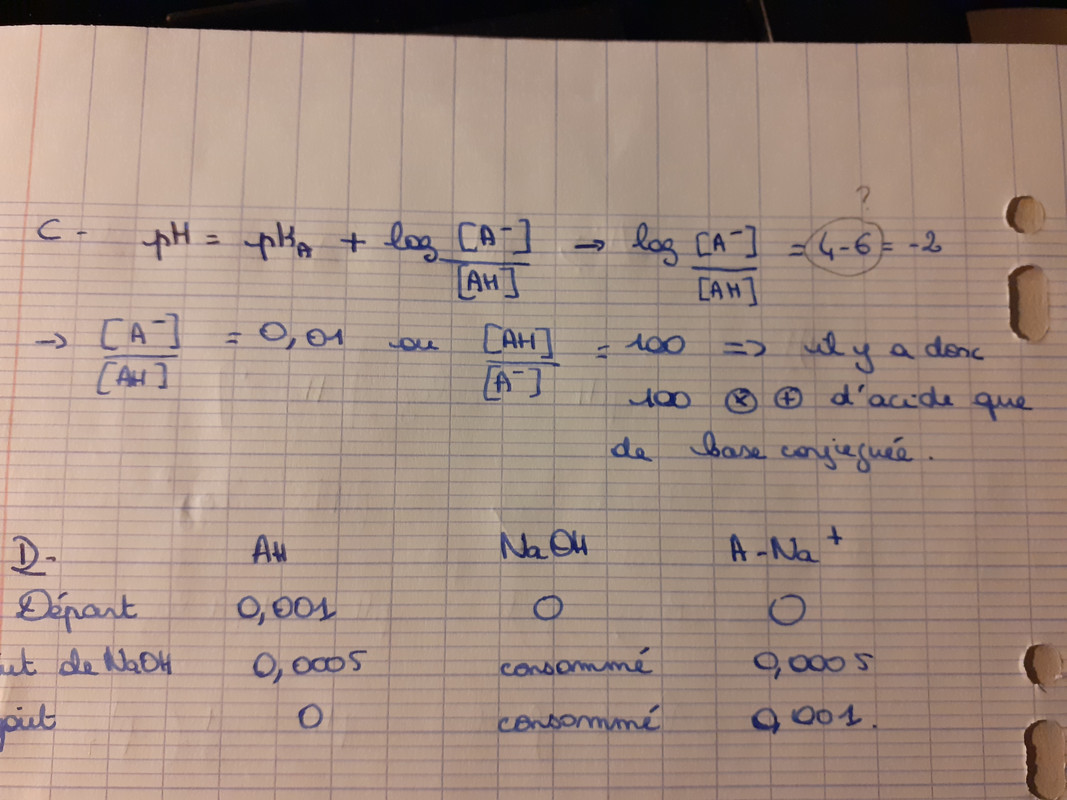 ?
C - pH = pKA + log [A⁻]/[AH] → log [A⁻]/[AH] = 4-6 = -2
→ [A⁻]/[AH] = 0,01 ou [AH]/[A⁻] = 100 => il y a donc
100 ⊗ ⊕ d'acide que
de base conjuguée.
D- AH NaOH A-Na⁺
Départ 0,001 0 0
ut de NaOH 0,0005 consommé 0,0005
jout 0 consommé 0,001.